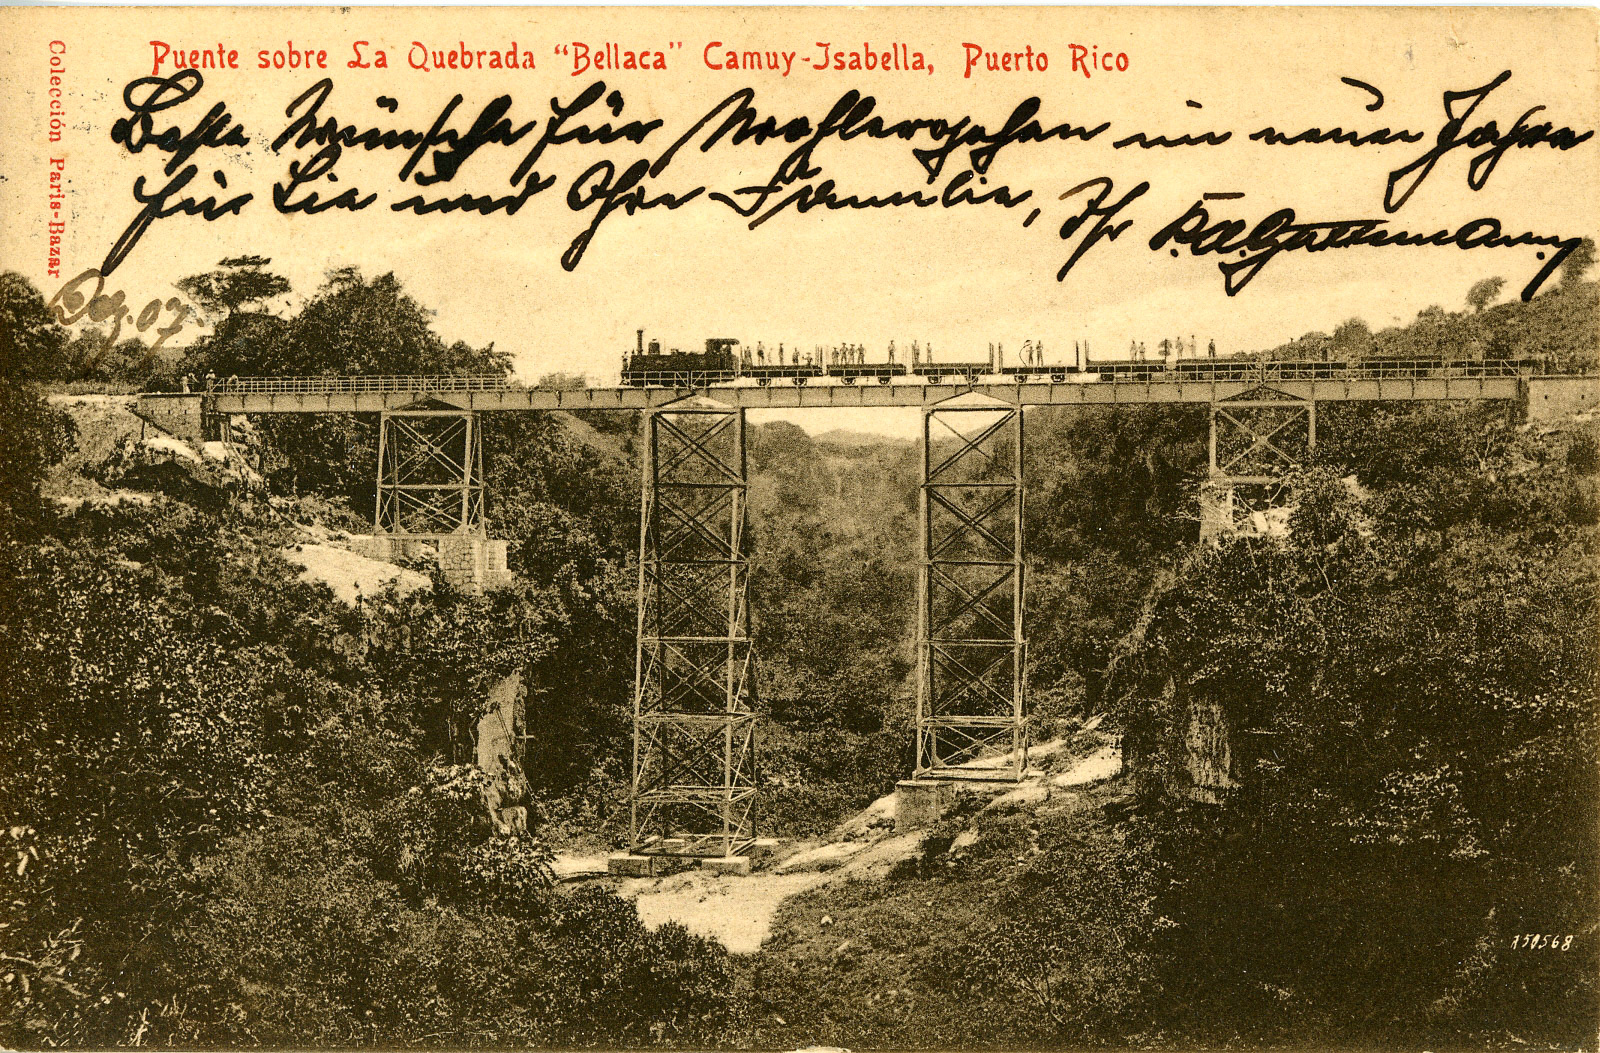 Puente sobre La Quebrada "Bellaca" Camuy-Isabella, Puerto Rico
Colección Paris-Bazar
Beste Wünsche für Wohlergehen im neuen Jahre
für Sie und Ihre Familie, Ihr
Dez. 07.
150568